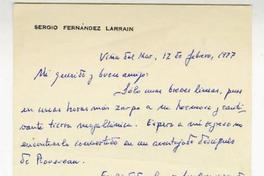 SERGIO FERNÁNDEZ LARRAIN
Viña del Mar, 12 de febrero, 1977
Mi querido y buen amigo:
Sólo unas breves líneas, pues
en unas horas más zarpo a su hermosa y cauti-
vante tierra magallánica. Espero a mi regreso no
encontrarlo convertido en un aventajado discípulo
de Rousseau.